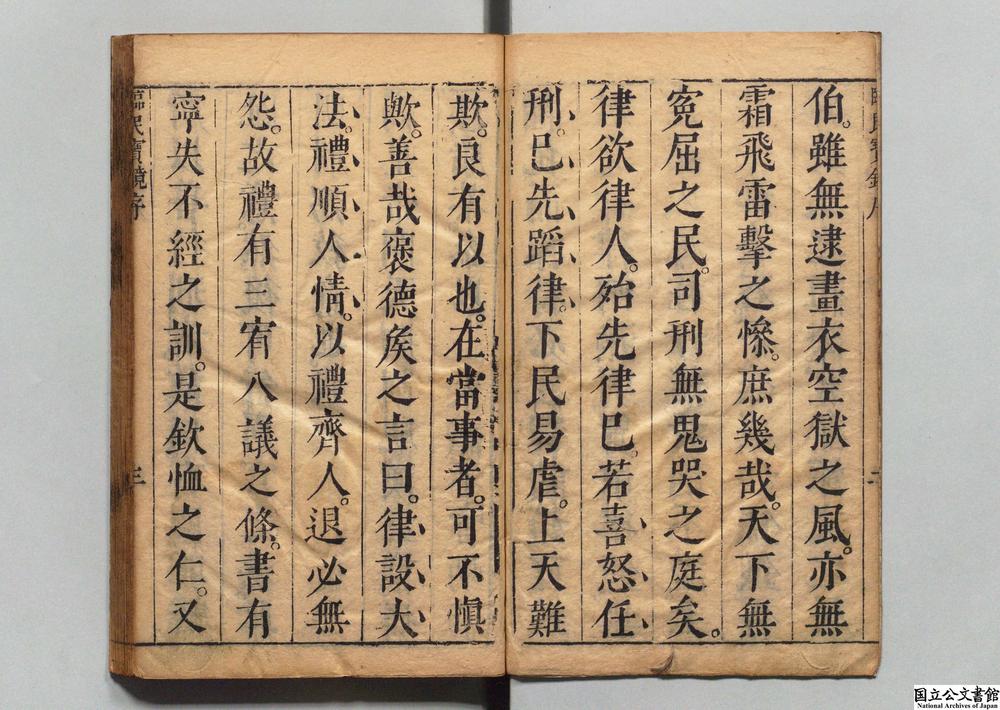 伯。雖無逮畫衣空獄之風。亦無
霜飛雷擊之慘。庶幾哉。天下無
寃屈之民。司刑無鬼哭之庭矣。
律欲律人。殆先律巳。若喜怒任
刑。巳先蹈律。下民易虐。上天難
欺。良有以也。在當事者。可不愼
歟。善哉褒德矦之言曰。律設大
法。禮順人情。以禮齊人。退必無
怨。故禮有三宥八議之條。書有
寧失不經之訓。是欽恤之仁。又
臨民寶鏡序
三
国立公文書館
National Archives of Japan